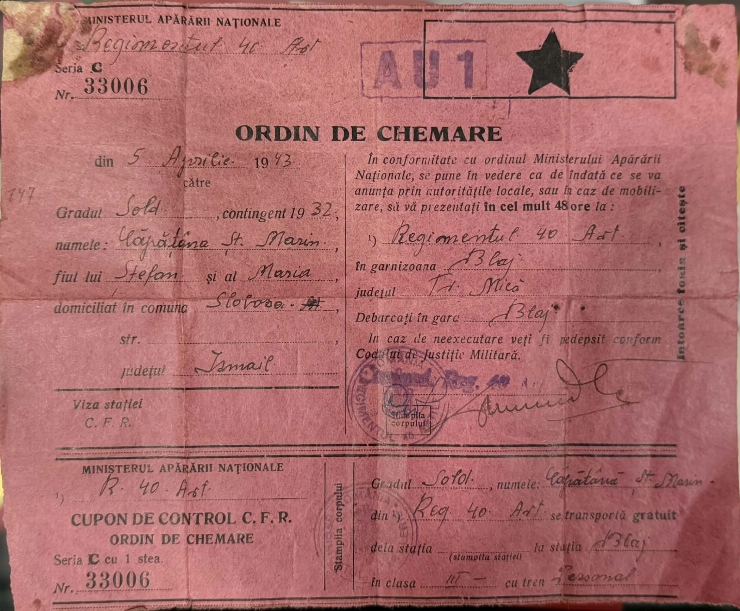 MINISTERUL APĂRĂRII NAȚIONALE
Regimentul 40 Art
Seria C
Nr. 33006
AU1
ORDIN DE CHEMARE
din 5 Aprilie 1943
către
147
Gradul Sold., contingent 1932,
numele: Căpățâna Șt. Marin,
fiul lui Ștefan și al Maria
domiciliat în comuna Slobozia
str.
județul Ismail
Viza stației
C. F. R.
În conformitate cu ordinul Ministerului Apărării
Naționale, se pune în vedere ca de îndată ce se va
anunța prin autoritățile locale, sau în caz de mobili-
zare, să vă prezentați în cel mult 48 ore la:
¹) Regimentul 40 Art,
în garnizoana Blaj
județul Tr. Mică
Debarcați în gara Blaj
În caz de neexecutare veți fi pedepsit conform
Codului de Justiție Militară.
Reg. 40
Stampila
corpului
Intoarce foaia și citește
MINISTERUL APĂRĂRII NAȚIONALE
¹) R. 40 Art
CUPON DE CONTROL C. F. R.
ORDIN DE CHEMARE
Seria C cu 1 stea.
Nr. 33006
Stampila corpului
Gradul Sold., numele: Căpățână Șt. Marin
din ¹) Reg 40 Art se transportă gratuit
dela stația la stația Blaj
(stampila stației)
în clasa III cu tren Personal